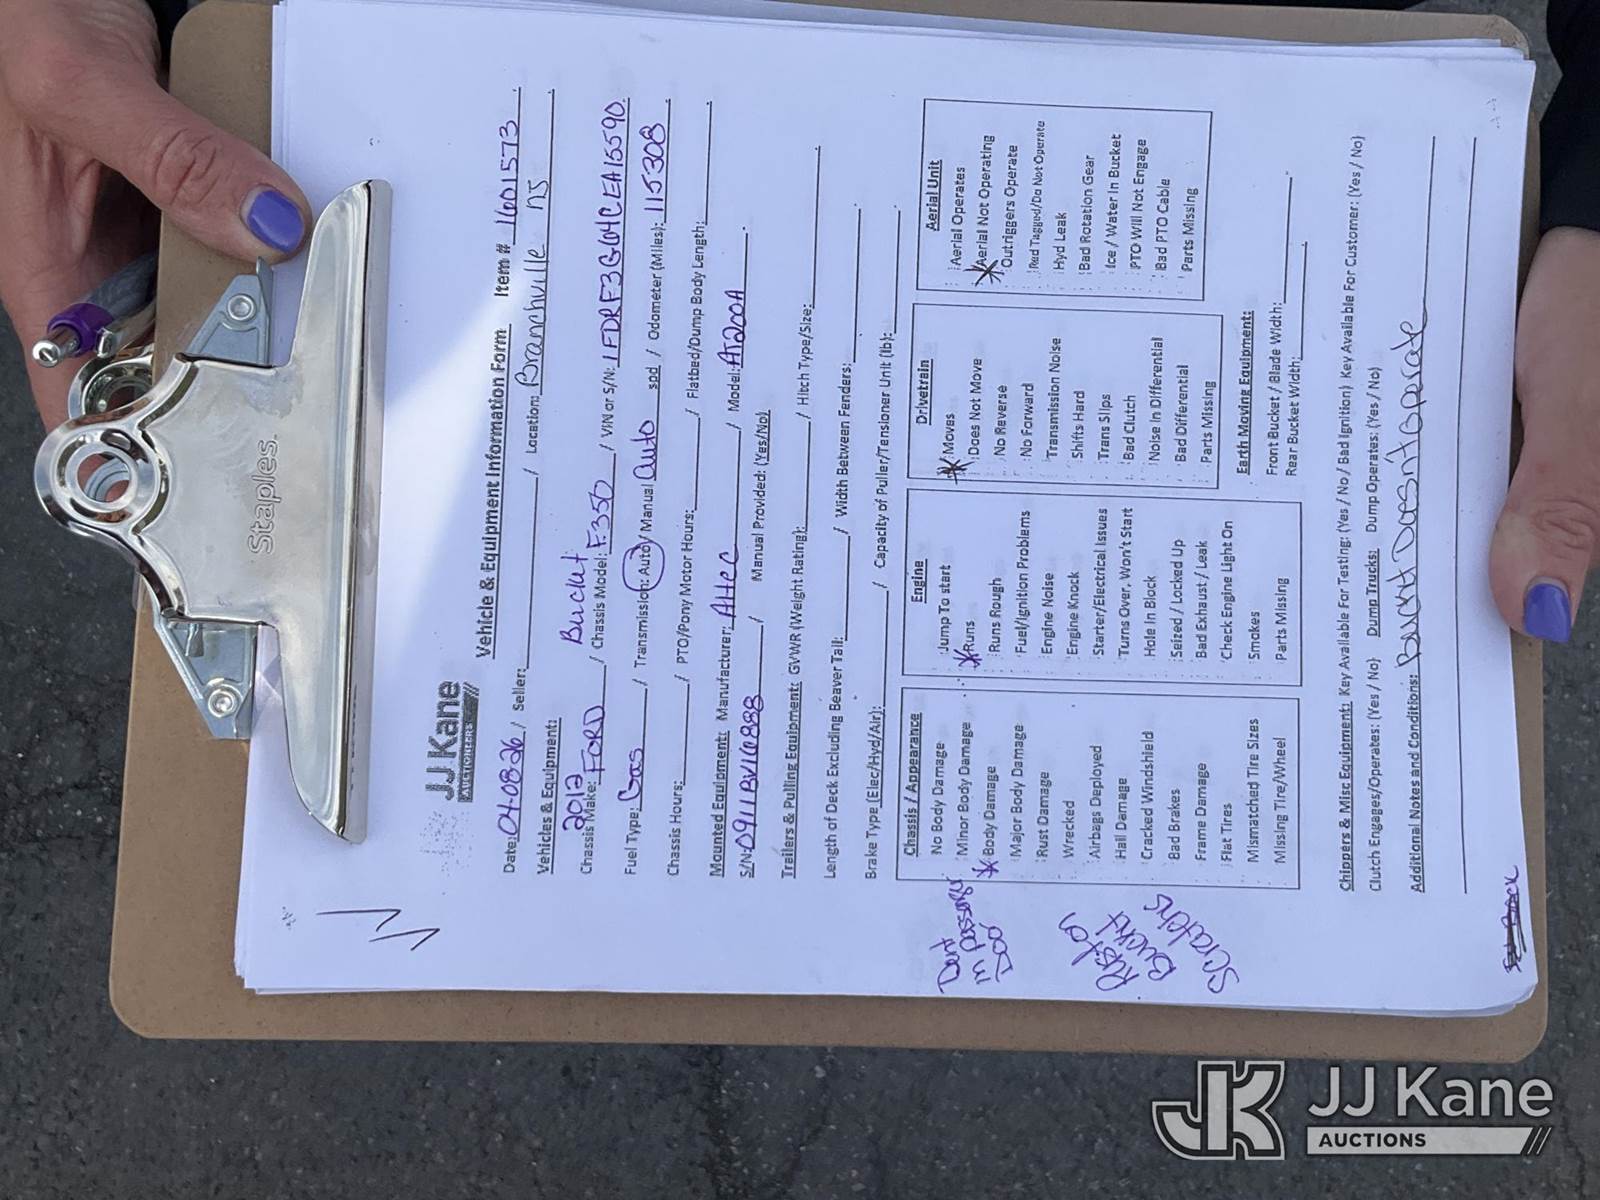 Staples
JJ Kane
AUCTIONEERS
Vehicle & Equipment Information Form Item # 1601573
Date: 04-08-26 / Seller: / Location: Branchville NJ
Vehicles & Equipment:
2012 Bucket
Chassis Make: FORD / Chassis Model: F350 / VIN or S/N: 1FDRF3G64CEA15590
Fuel Type: Gas / Transmission: Auto / Manual auto spd / Odometer (Miles): 115308
Chassis Hours: / PTO/Pony Motor Hours: / Flatbed/Dump Body Length:
Mounted Equipment: Manufacturer: Altec / Model: AT200A
S/N: 0911BV16888 / Manual Provided: (Yes/No)
Trailers & Pulling Equipment: GVWR (Weight Rating): / Hitch Type/Size:
Length of Deck Excluding Beaver Tail: / Width Between Fenders:
Brake Type (Elec/Hyd/Air): / Capacity of Puller/Tensioner Unit (lb):
Chassis / Appearance
No Body Damage
Minor Body Damage
Body Damage
Major Body Damage
Rust Damage
Wrecked
Airbags Deployed
Hail Damage
Cracked Windshield
Bad Brakes
Frame Damage
Flat Tires
Mismatched Tire Sizes
Missing Tire/Wheel
Dent
in passenger
Door
Rust on
Bucket
Scratches
Engine
Jump To start
Runs
Runs Rough
Fuel/Ignition Problems
Engine Noise
Engine Knock
Starter/Electrical Issues
Turns Over, Won't Start
Hole In Block
Seized / Locked Up
Bad Exhaust / Leak
Check Engine Light On
Smokes
Parts Missing
Drivetrain
Moves
Does Not Move
No Reverse
No Forward
Transmission Noise
Shifts Hard
Trans Slips
Bad Clutch
Noise In Differential
Bad Differential
Parts Missing
Aerial Unit
Aerial Operates
Aerial Not Operating
Outriggers Operate
Red Tagged/Do Not Operate
Hyd Leak
Bad Rotation Gear
Ice / Water In Bucket
PTO Will Not Engage
Bad PTO Cable
Parts Missing
Earth Moving Equipment:
Front Bucket / Blade Width:
Rear Bucket Width:
Chippers & Misc Equipment: Key Available For Testing: (Yes / No / Bad Ignition) Key Available For Customer: (Yes / No)
Clutch Engages/Operates: (Yes / No) Dump Trucks: Dump Operates: (Yes / No)
Additional Notes and Conditions: Bucket Doesn't Operate
JJ Kane
AUCTIONS